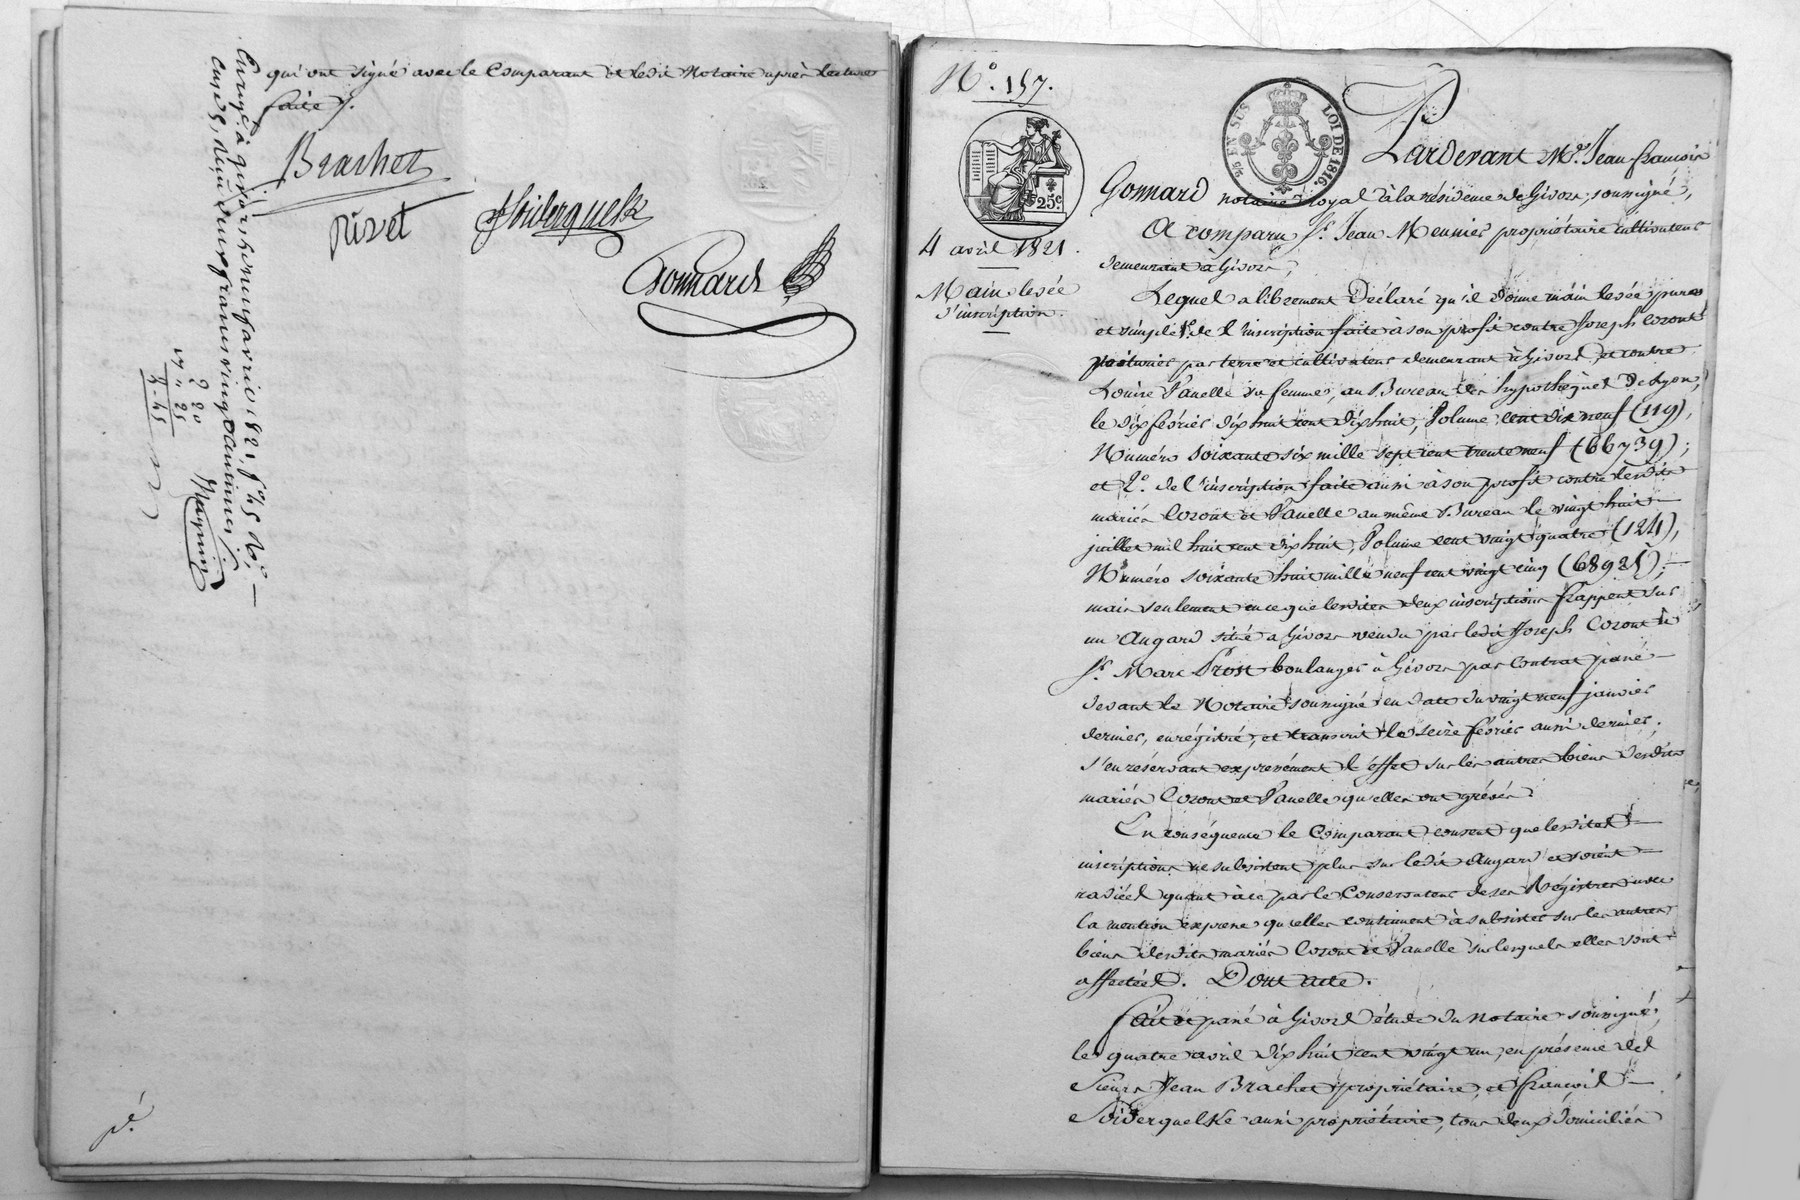 qui ont signé avec le Comparant et ledit Notaire après lecture
faite /.
Brachet
rivet
Soiderquelk
Gonnard
Enrégé à givors le neuf avril 1821, f° 45
reçu deux francs vingt centimes
Magnin
2 20
25
2-45
N° 157.
25 c
EN SUS
LOI DE 1816.
4 avril 1821.
Main levée
d'inscription.
Pardevant Me. Jean françois
Gonnard notaire royal à la résidence de Givors, soussigné,
A comparu Sr. Jean Meunier propriétaire cultivateur
demeurant à Givors,
Lequel a librement Déclaré qu'il donne main levée pure
et simple 1°. de l'inscription faite à son profit contre Joseph Coront
voiturier par terre et cultivateur demeurant à Givors et contre
Louise Panelle sa femme, au Bureau des hypothèques de Lyon,
le dix février dix huit cent dix huit, Volume cent dix neuf (119),
Numéro soixante six mille sept cent trente neuf (66739);
et 2°. de l'inscription faite aussi à son profit contre lesdits
mariés Coront et Panelle au même Bureau le vingt huit
juillet mil huit cent dix huit, Volume cent vingt quatre (124),
Numéro soixante huit mille neuf cent vingt cinq (68925);
mais seulement en ce que lesdites deux inscriptions frappent sur
un Angard situé à Givors vendu par ledit Joseph Coront à
Sr. Marc Prost boulanger à Givors par Contrat passé
devant le Notaire soussigné en date du vingt neuf janvier
dernier, enrégistré, et transcrit le seize février aussi dernier,
s'en réservant expressément l'effet sur les autres biens desdits
mariés Coront et Panelle qu'elles ont grévés.
En conséquence le Comparant consent que lesdites
inscriptions ne subsistent plus sur ledit Angard et soient
radiées quant à ce par le Conservateur de ses Régistres avec
la mention expresse qu'elles continuent à subsister sur les autres
biens desdits mariés Coront et Panelle sur lesquels elles sont
affectées. Dont acte.
fait et passé à Givors étude du Notaire soussigné,
le quatre avril dix huit cent vingt un, en présence des
Sieurs Jean Brachet propriétaire, et françois
Soiderquelke aussi propriétaire, tous deux domiciliés